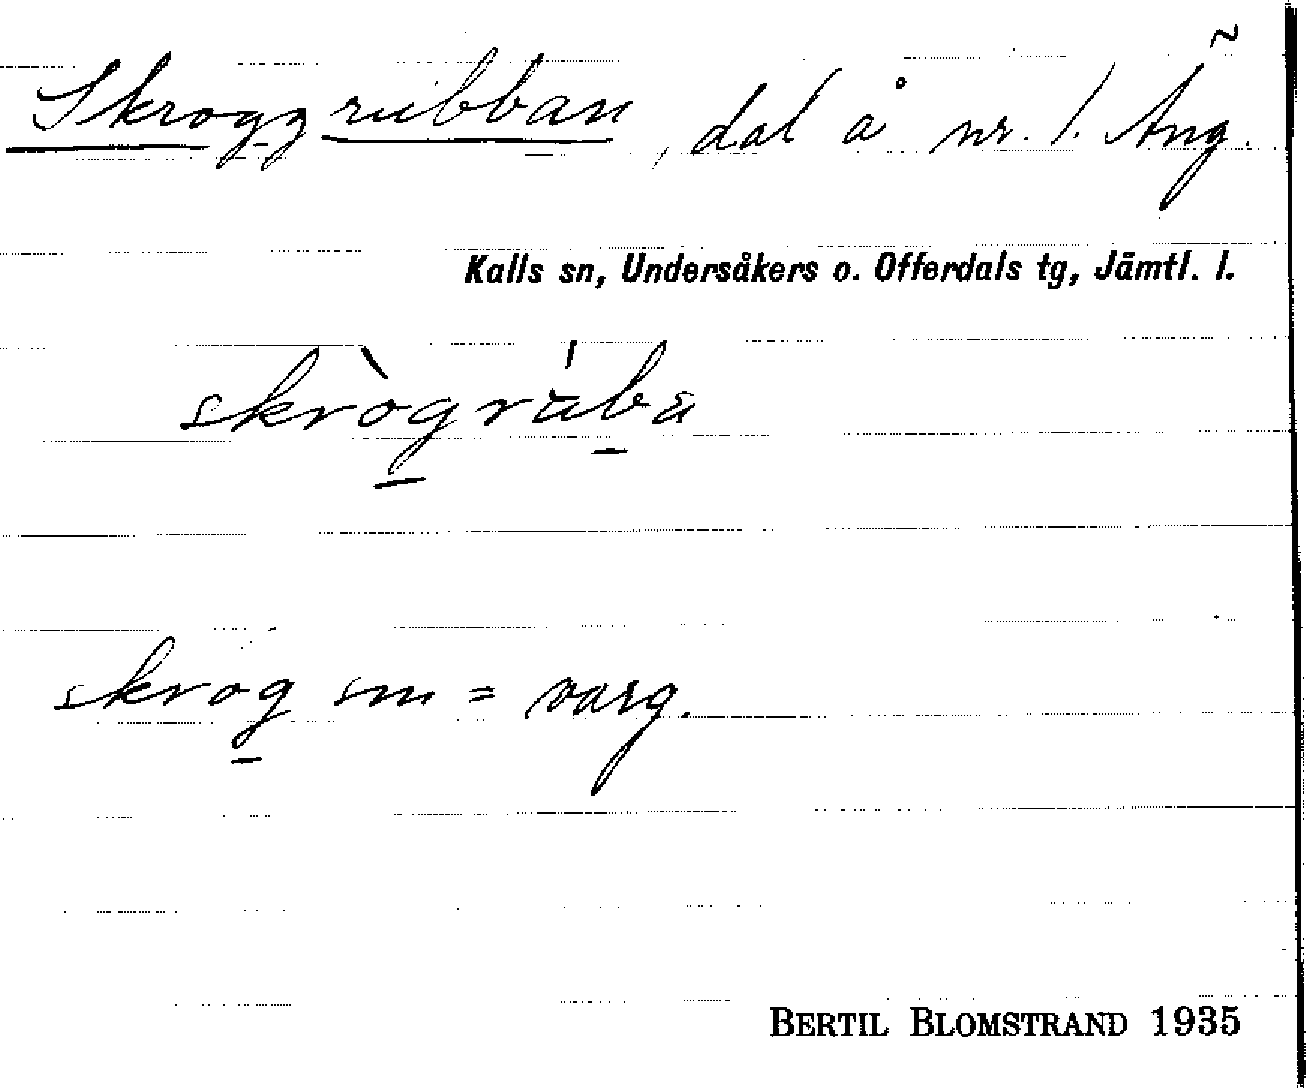 Skroggrubban, dal å nr. 1. Äng.
Kalls sn, Undersåkers o. Offerdals tg, Jämtl. l.
skrògrúba
skrog sm = varg.
BERTIL BLOMSTRAND 1935